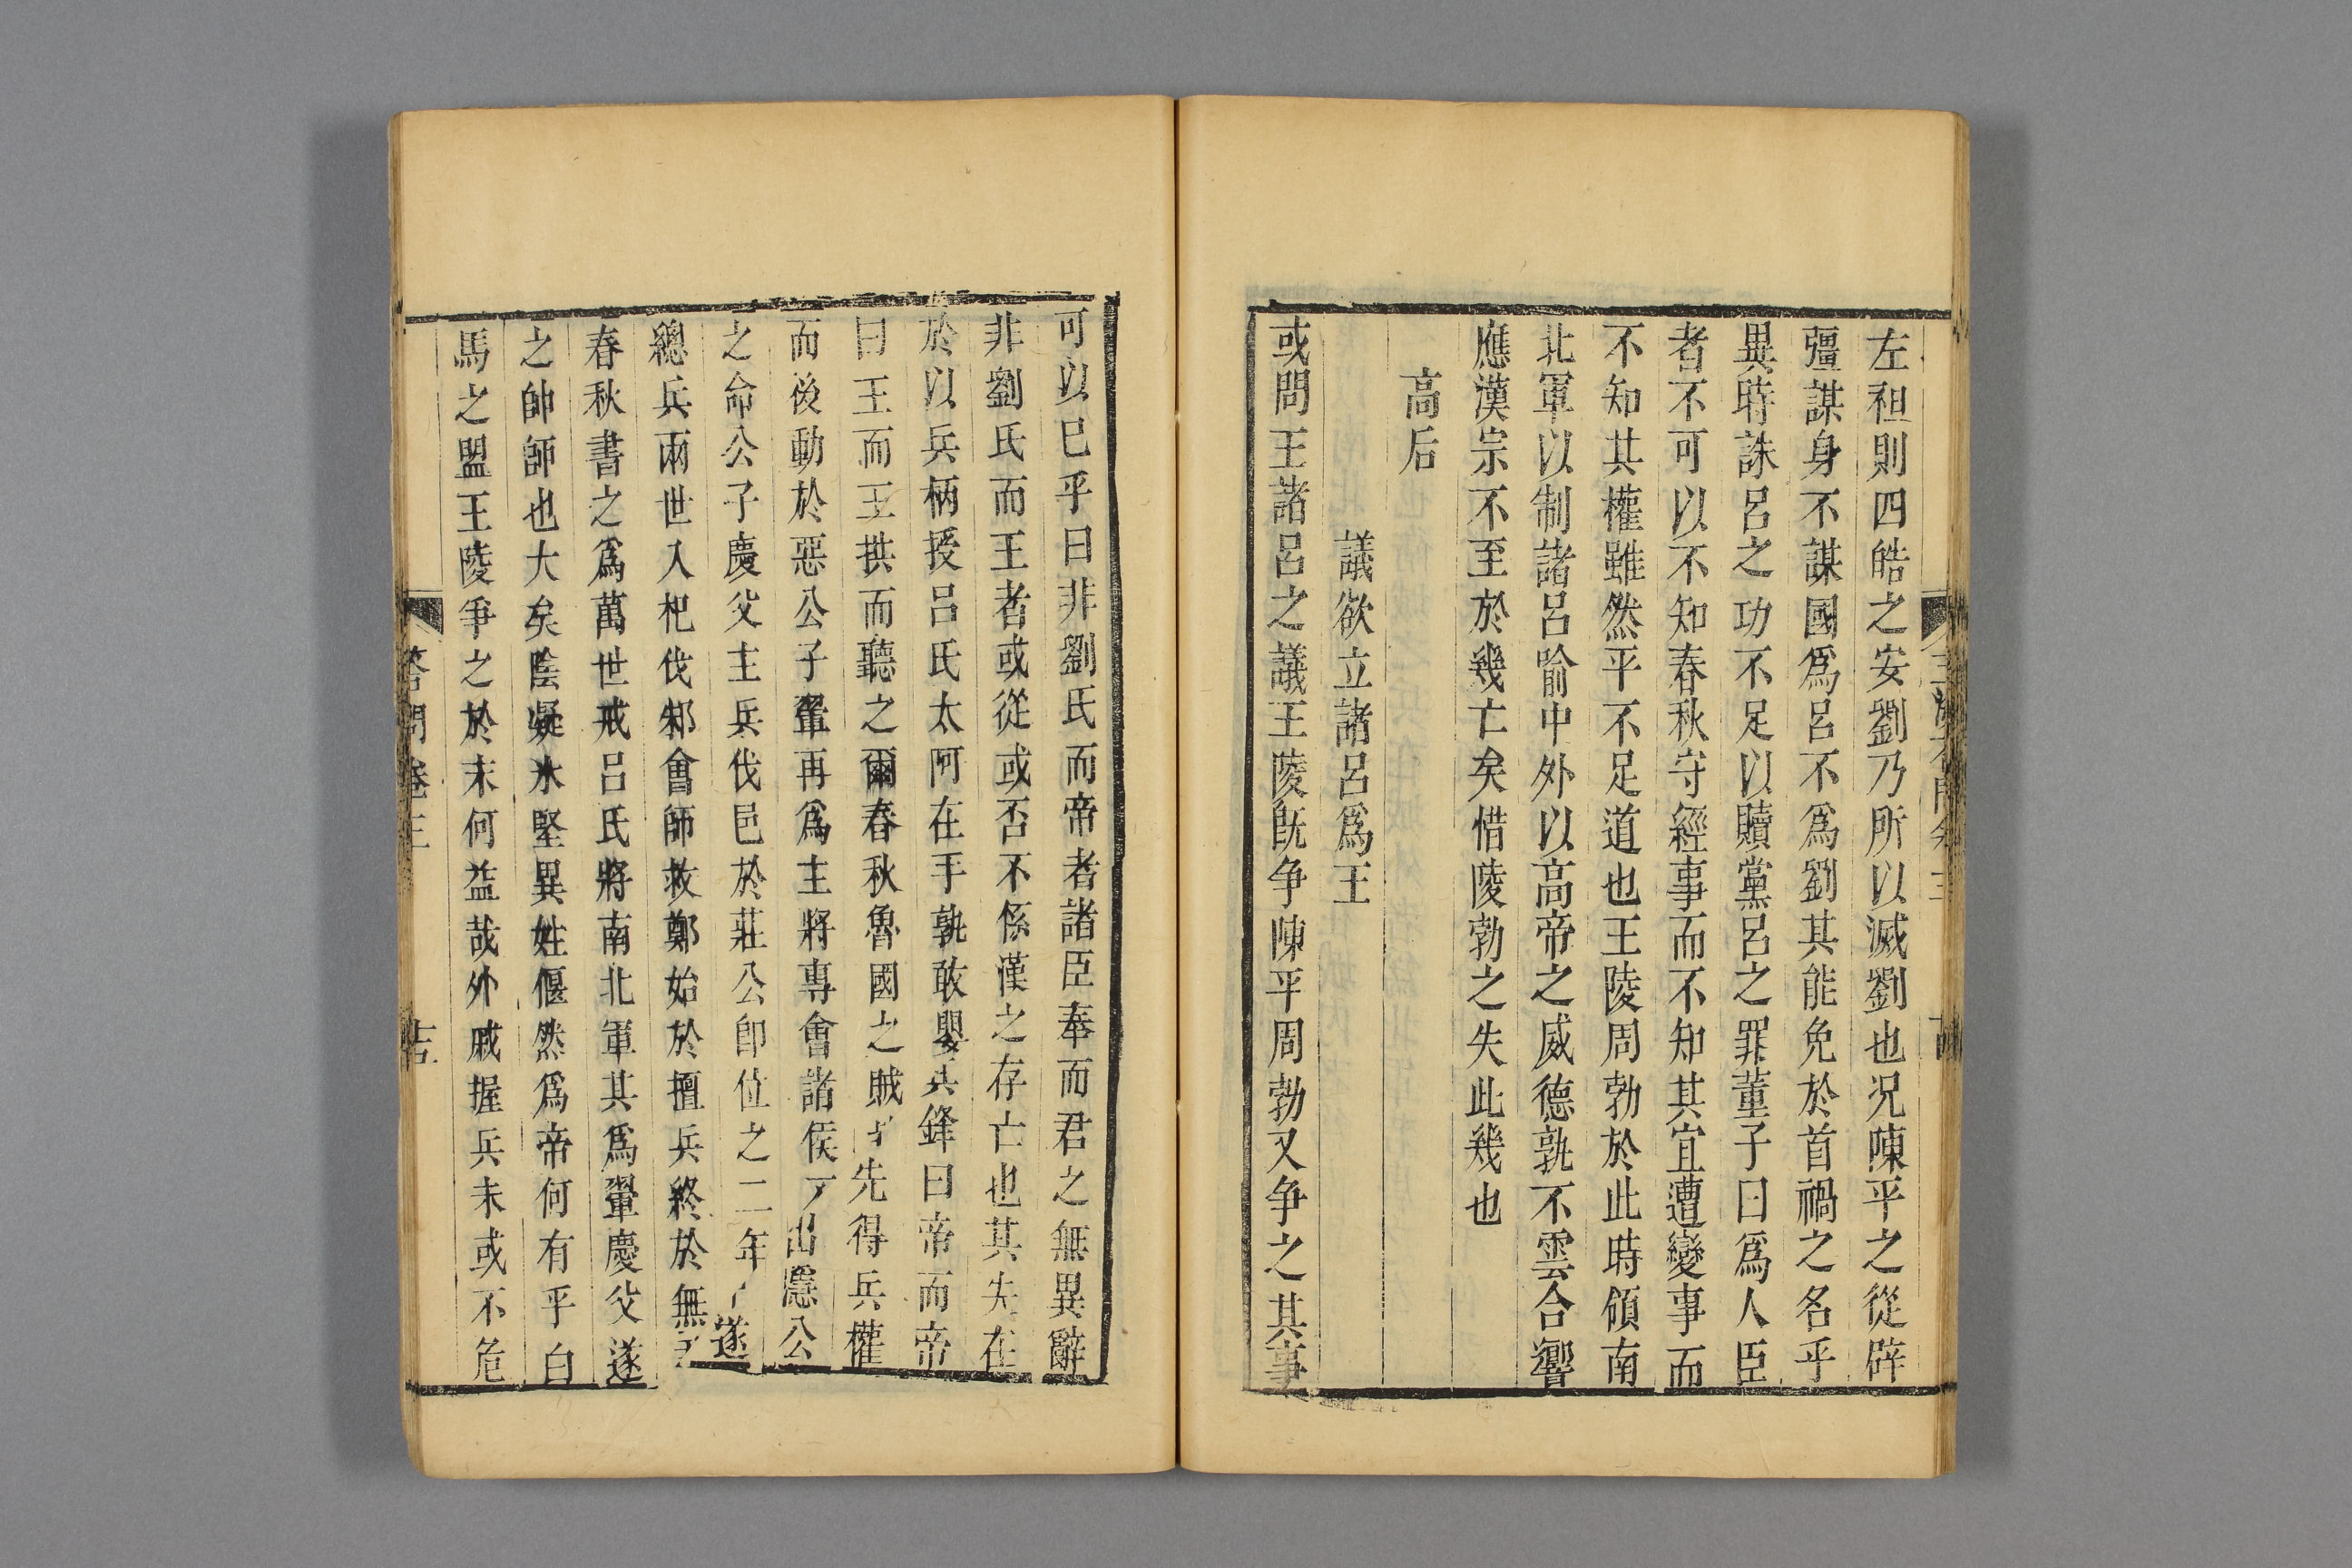 左袒則四皓之安劉乃所以滅劉也况陳平之從辟
彊謀身不謀國爲呂不爲劉其能免於首禍之名乎
異時誅呂之功不足以贖黨呂之罪董子曰爲人臣
者不可以不知春秋守經事而不知其宜遭變事而
不知其權雖然平不足道也王陵周勃於此時領南
北軍以制諸呂喻中外以高帝之威德孰不雲合響
應漢宗不至於幾亡矣惜陵勃之失此幾也
高后
議欲立諸呂爲王
或問王諸呂之議王陵旣争陳平周勃又争之其事
可以巳乎曰非劉氏而帝者諸臣奉而君之無異辭
非劉氏而王者或從或否不係漢之存亡也其失在
於以兵柄授呂氏太阿在手孰敢嬰兵鋒曰帝而帝
曰王而王拱而聽之爾春秋魯國之賊先得兵權
而後動於惡公子翬再爲主將專會諸侯出隱公
之命公子慶父主兵伐邑於莊公卽位之二年遂
總兵兩世入杞伐邾會師救鄭始於擅兵終於無
春秋書之爲萬世戒呂氏將南北軍其爲翬慶父遂
之帥師也大矣陰凝氷堅異姓偃然爲帝何有乎白
馬之盟王陵爭之於末何益哉外戚握兵未或不危
答問卷三